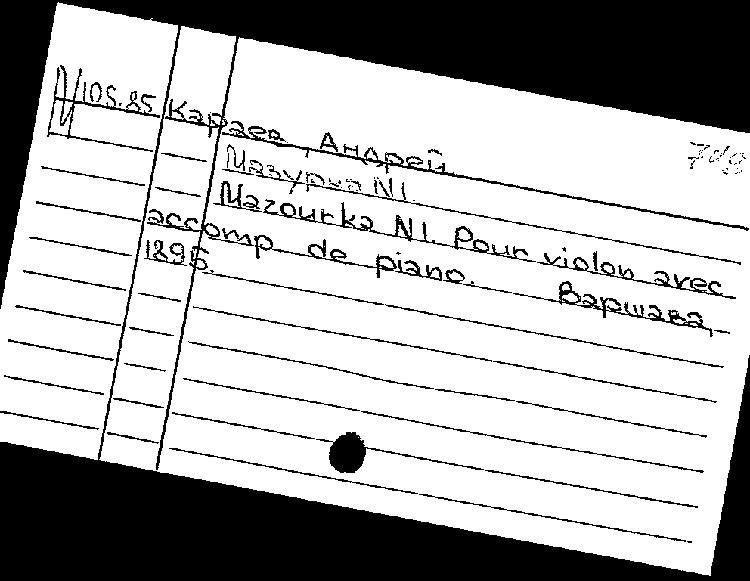 105.85 Караев, Андрей
Мазурка N1.
Mazourka N1. Pour violon avec
accomp. de piano. Варшава,
1895.